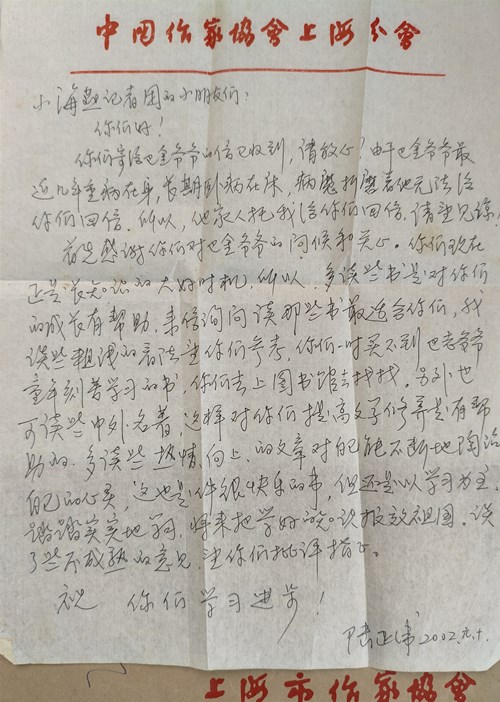 中国作家協會上海分會
小海燕记者团的小朋友们：
你们好！
你们寄给巴金爷爷的信已收到，请放心！由于巴金爷爷最
近几年重病在身，长期卧病在床，病魔折磨着他无法给
你们回信。所以，他家人托我给你们回信。请望见谅。
首先感谢你们对巴金爷爷的问候和关心。你们现在
正是长知识的大好时机，所以，多读些书是对你们
的成长有帮助。来信询问读那些书最适合你们，我
谈些粗浅的看法望你们参考。你们一时买不到巴老爷爷
童年刻苦学习的书，你们去上图书馆去找找。另外也
可读些中外名著，这样对你们提高文学修养是有帮
助的。多读些热情、向上、的文章对自己能不断地陶冶
自己的心灵，这也是件很快乐的事，但还是以学习为主，
踏踏实实地学习，将来把学好的知识报效祖国。谈
了些不成熟的意见，望你们批评指正。
祝 你们学习进步！
陆正伟 2002.元.十.
上海市作家協會